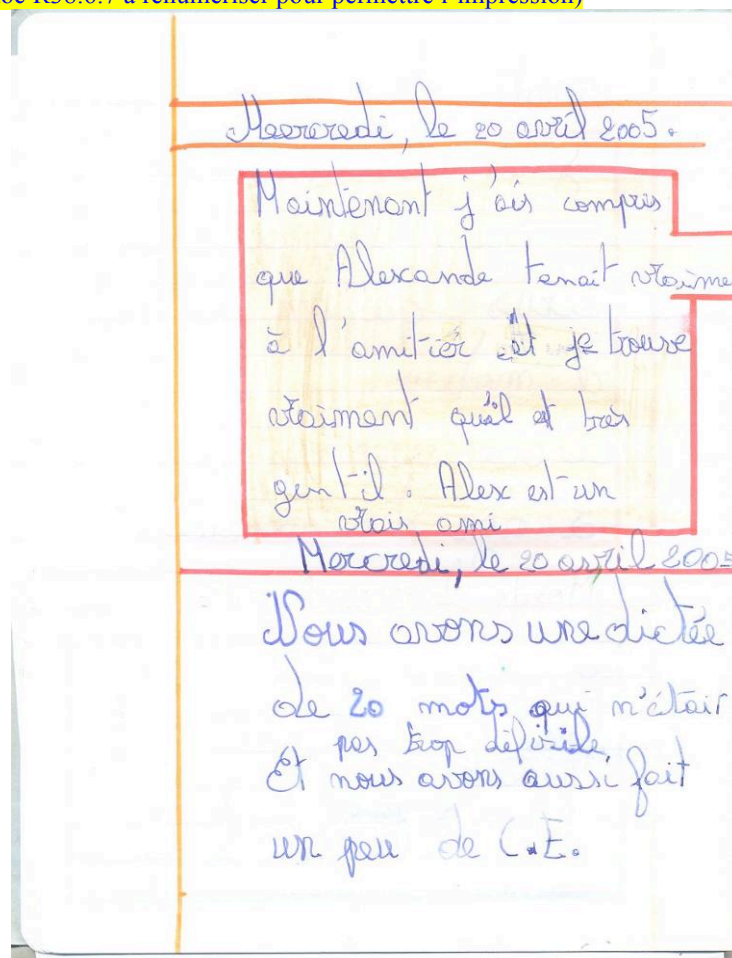 R38.6.7 à renumériser pour permettre l'impression)
Meercredi, le 20 avril 2005.
Maintenant j'ais compris
que Alexande tenait vraime
à l'amitiér et je trouve
vraiment qu'il et très
gentil. Alex est un
vrais ami
Mercredi, le 20 avril 2005
Nous avons une dictée
de 20 mots qui n'étair
pas trop dificile
Et nous avons aussi fait
un peu de C.E.